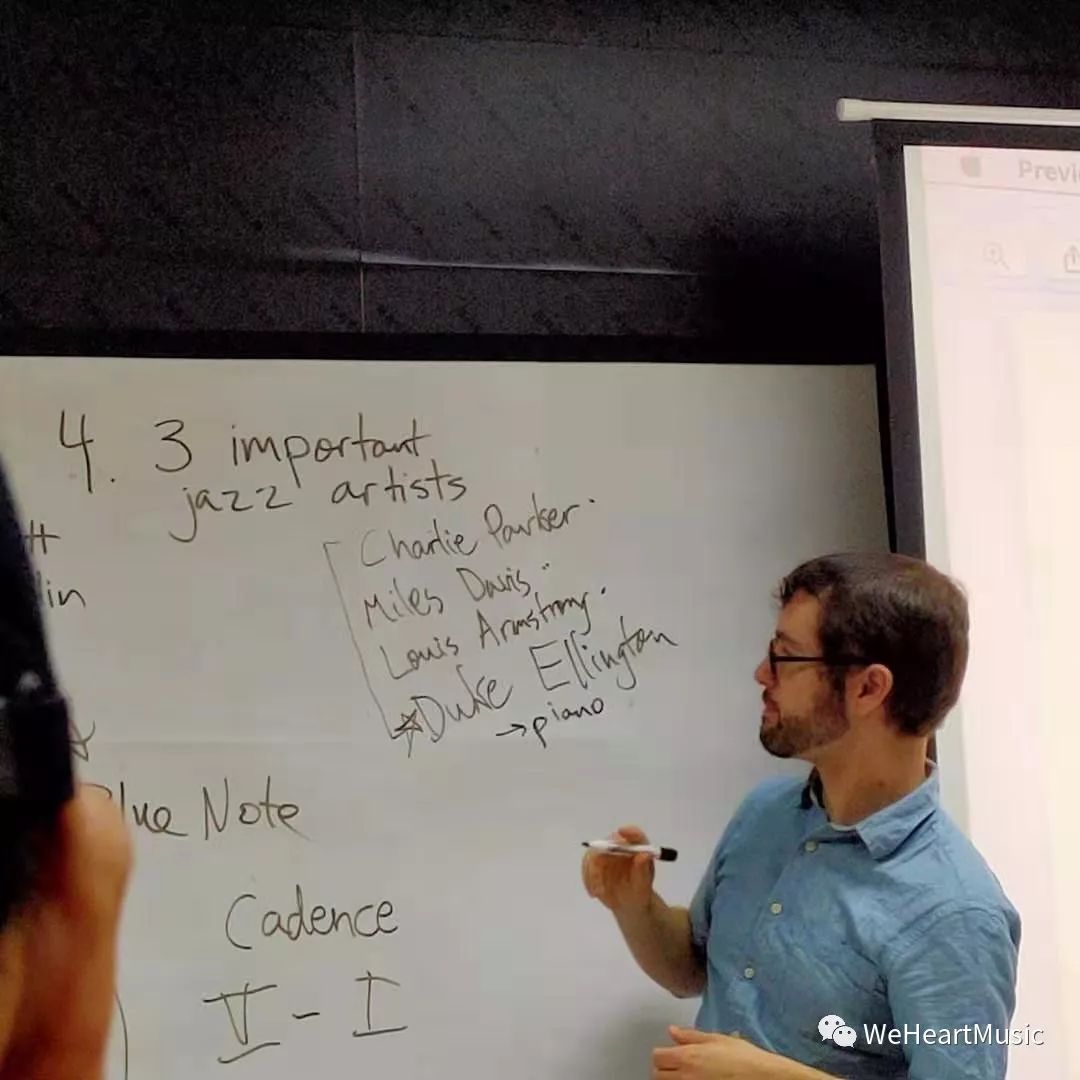 4. 3 important
jazz artists
Charlie Parker
Miles Davis
Louis Armstrong
Duke Ellington
→ piano
Note
Cadence
V - I
WeHeartMusic